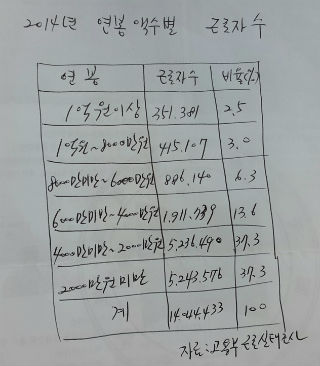 2014년 연봉 액수별 근로자 수
연봉 근로자수 비율(%)
1억원이상 351.381 2.5
1억원~8000만원 415.107 3.0
8000만미만~6000만원 886.140 6.3
6000만미만~4000만원 1,911.739 13.6
4000만미만~2000만원 5,236.490 37.3
2000만원 미만 5,243.576 37.3
계 14.044.433 100
자료:고용부 근로실태조사